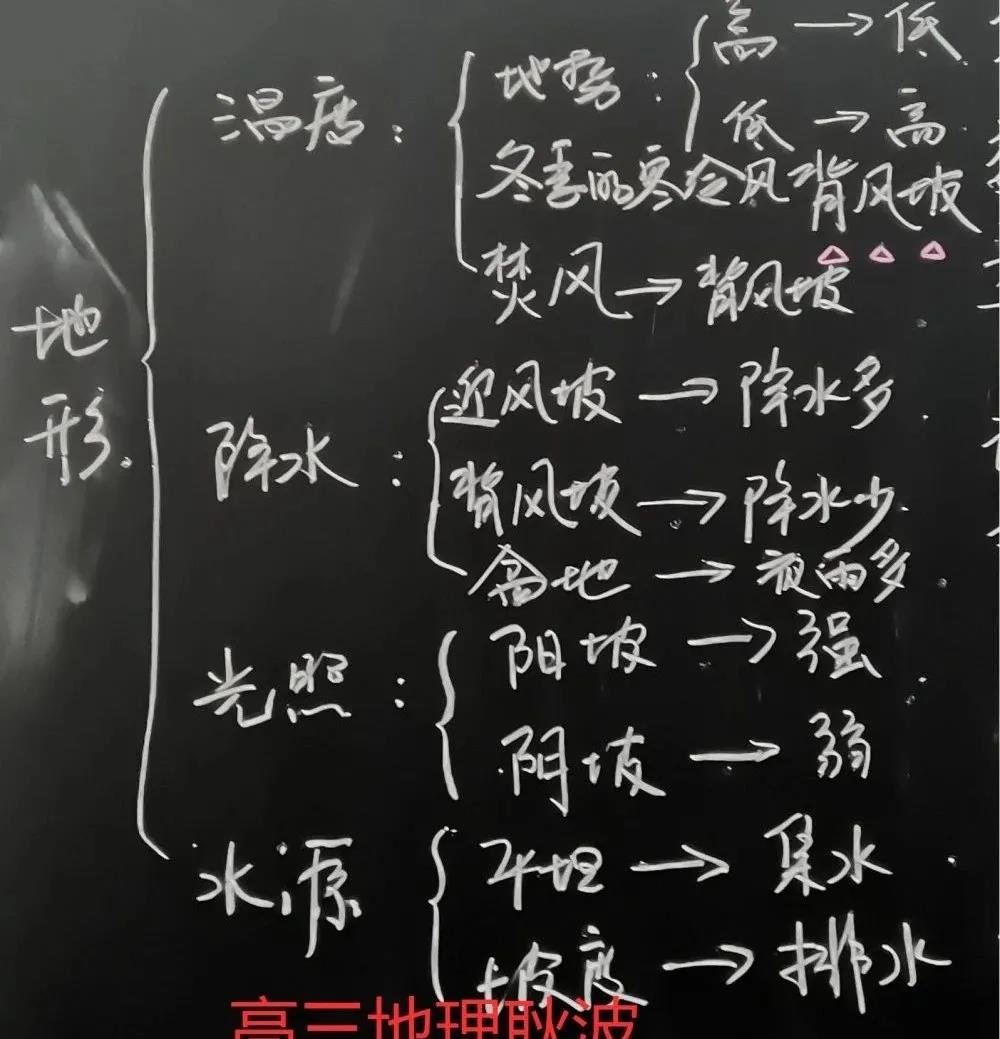 地形
温度：
地势：
高 → 低
低 → 高
冬季的寒冷风背风坡
焚风 → 背风坡
降水：
迎风坡 → 降水多
背风坡 → 降水少
盆地 → 夜雨多
光照：
阳坡 → 强
阴坡 → 弱
水源
平坦 → 集水
坡度 → 排水
高三地理耿波